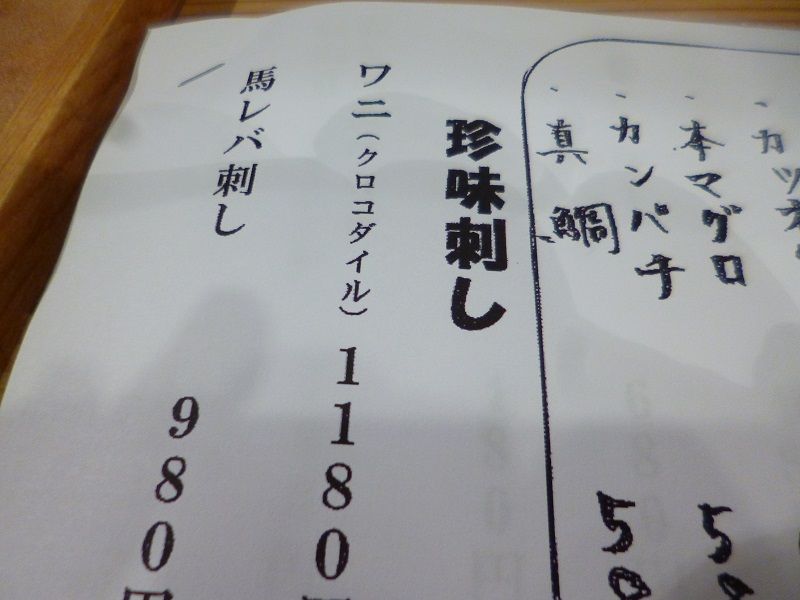 ・カツオ
・本マグロ 50
・カンパチ 50
・真鯛
珍味刺し
ワニ(クロコダイル) 1180円
馬レバ刺し 980円